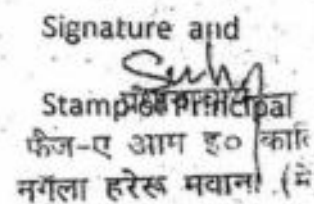 Signature and
Stamp of Principal
फैज-ए आम इ० का
नगॅला हरेरू मवाना (